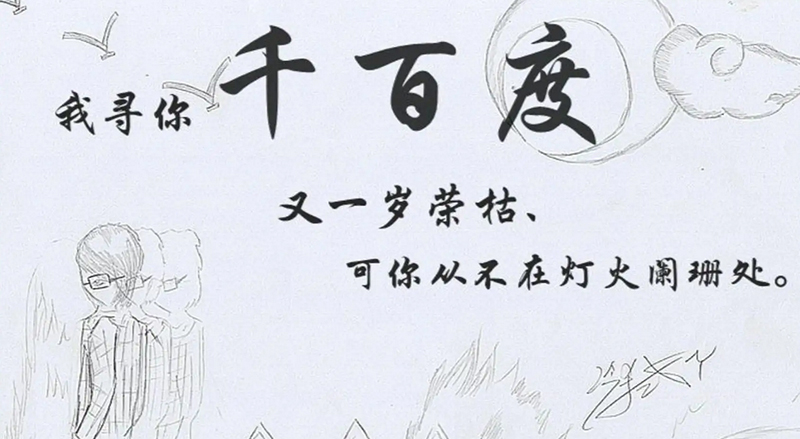 我寻你千百度
又一岁荣枯、
可你从不在灯火阑珊处。